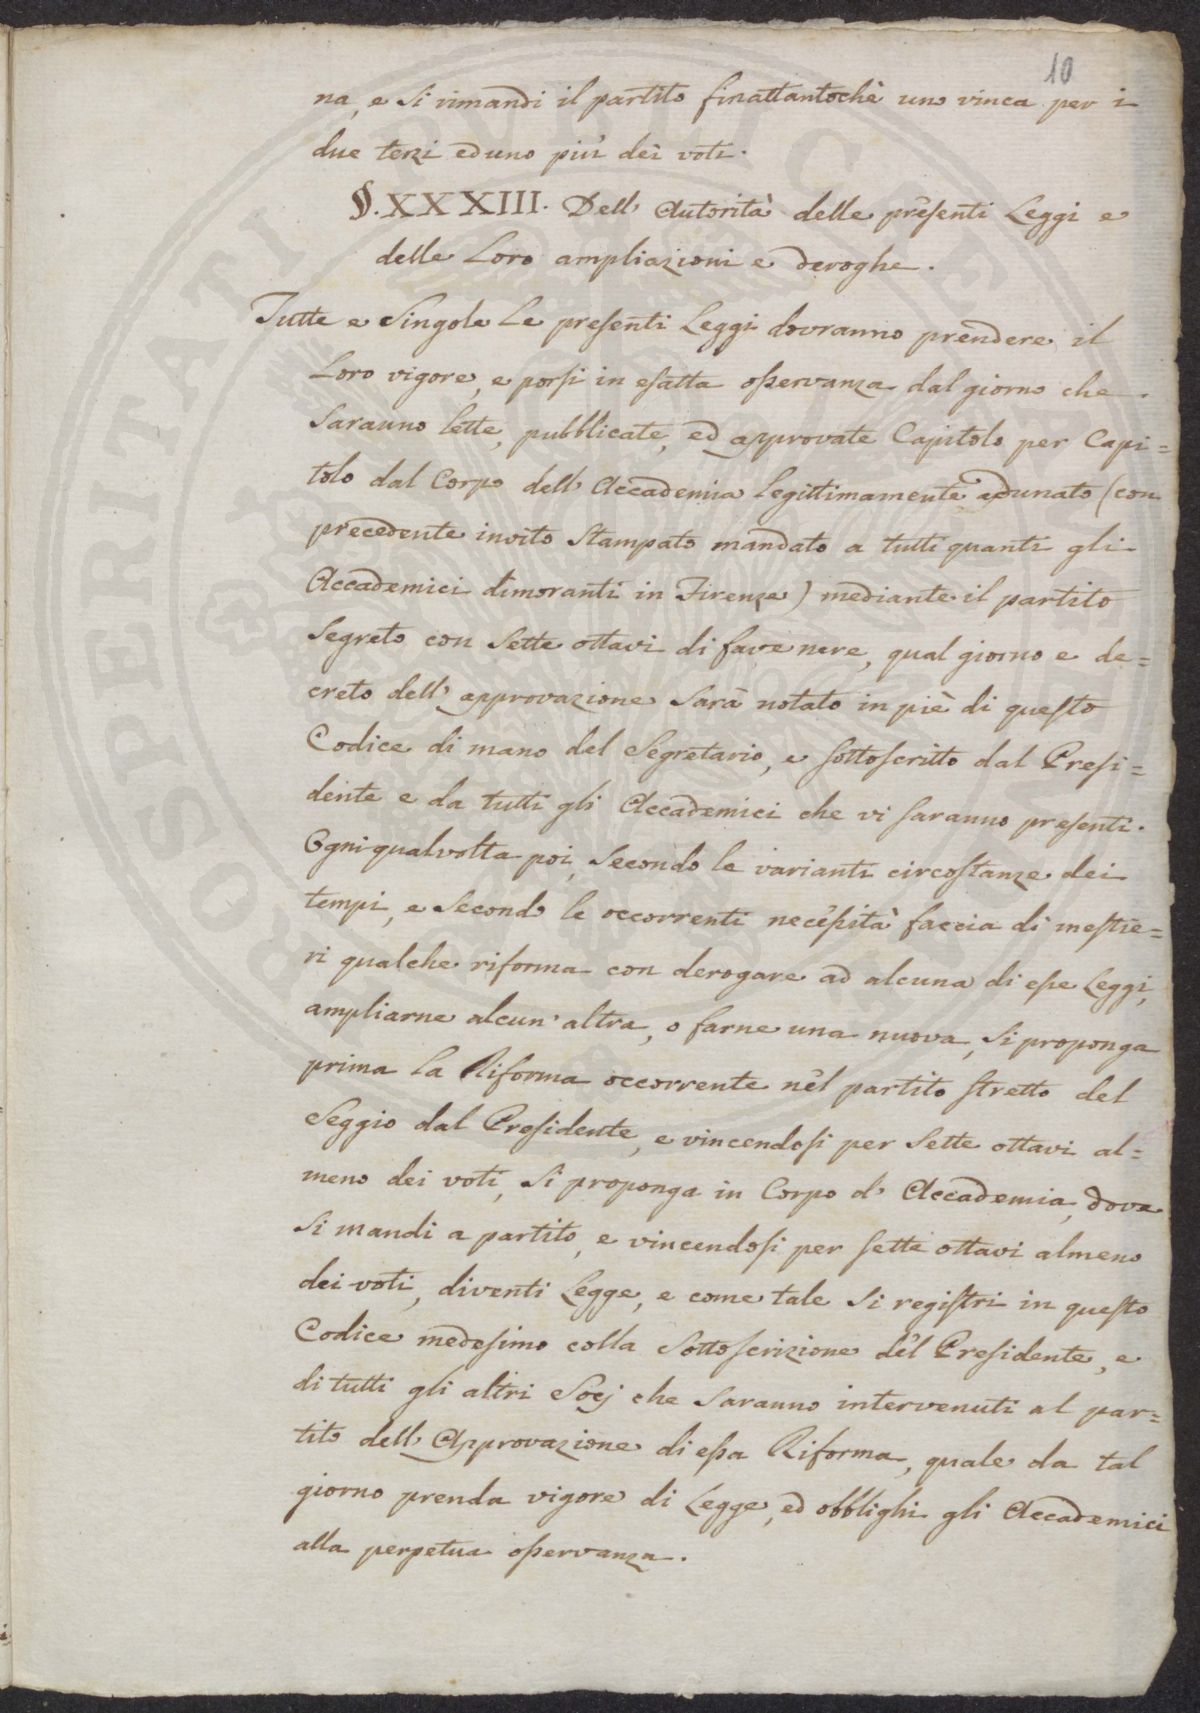 10
na, e si rimandi il partito finattantochè uno vinca per i
due terzi ed uno più dei voti.
§. XXXIII. Dell' Autorità delle presenti Leggi e
delle Loro ampliazioni e deroghe.
Tutte e Singole Le presenti Leggi dovranno prendere il
Loro vigore, e porsi in esatta osservanza dal giorno che
saranno lette, pubblicate, ed approvate Capitolo per Capi=
tolo dal Corpo dell' Accademia legittimamente adunato (con
precedente invito stampato mandato a tutti quanti gli
Accademici dimoranti in Firenze) mediante il partito
segreto con sette ottavi di fave nere, qual giorno e de=
creto dell' approvazione sarà notato in piè di questo
Codice di mano del Segretario, e sottoscritto dal Presi=
dente e da tutti gli Accademici che vi saranno presenti.
Ogni qualvolta poi, secondo le varianti circostanze dei
tempi, e secondo le occorrenti necessità faccia di mestie=
ri qualche riforma con derogare ad alcuna di esse Leggi,
ampliarne alcun' altra, o farne una nuova, si proponga
prima la Riforma occorrente nel partito stretto del
Seggio dal Presidente, e vincendosi per sette ottavi al=
meno dei voti, si proponga in Corpo d' Accademia, dove
si mandi a partito, e vincendosi per sette ottavi almeno
dei voti, diventi Legge, e come tale si registri in questo
Codice medesimo colla sottoscrizione del Presidente, e
di tutti gli altri Socj che saranno intervenuti al par=
tito dell' Approvazione di essa Riforma, quale da tal
giorno prenda vigore di Legge, ed obblighi gli Accademici
alla perpetua osservanza.
PROSPERITATI PUBLICAE